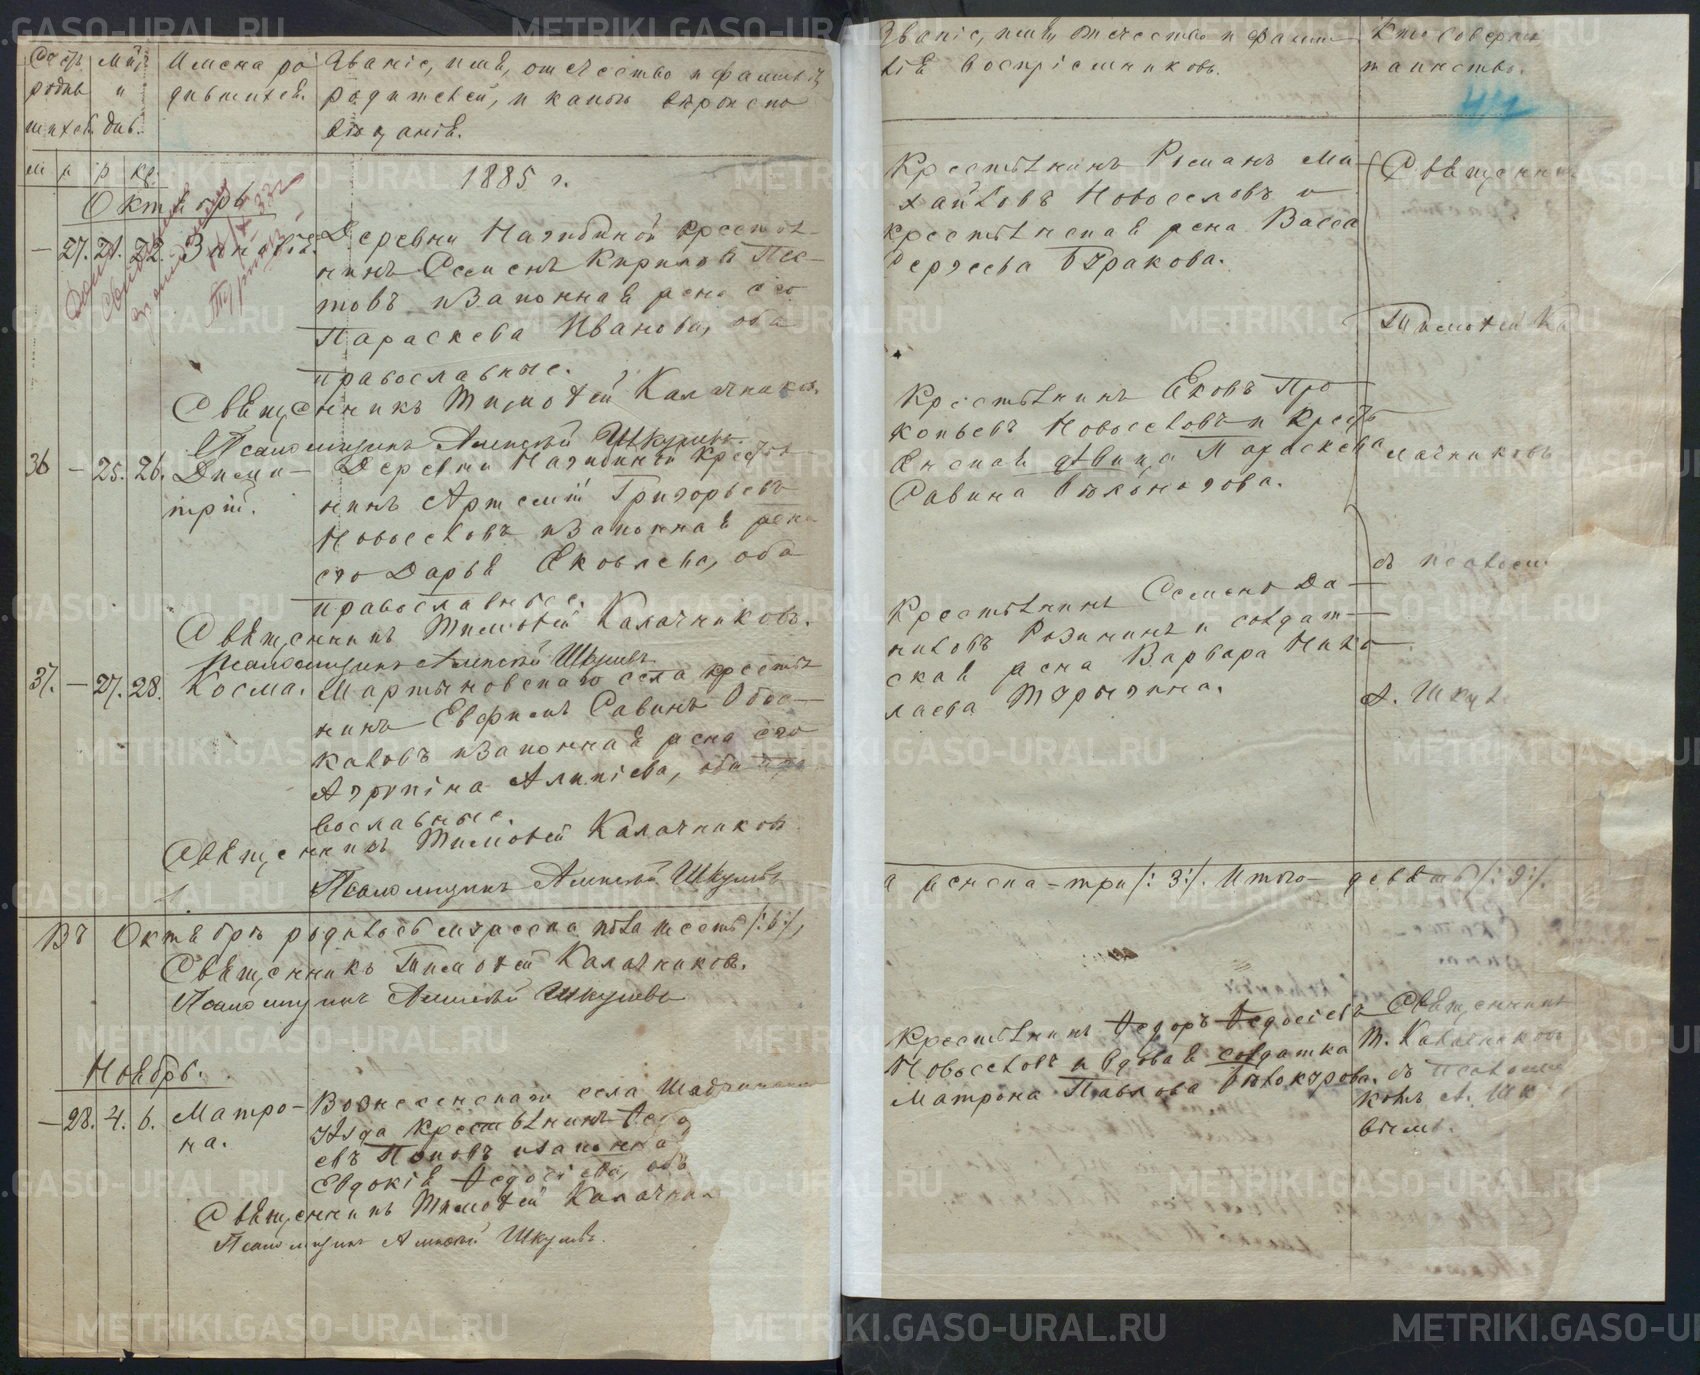 Званіе, имя, отчество и фами-
родителей, и какого вѣроиспо
вѣданія.
Имена ро
дившихся.
м ж р кр
1885 г.
Октябрь
— 27. 21. 22. Зиновія.
Деревни Нагибиной крестья-
нинъ Семенъ Кирилов Пес-
товъ и законная жена его
Параскева Иванова, оба
православные.
Священникъ Тимофей Калачников.
Псаломщикъ Алексѣй Шкулевъ.
36 — 25. 26. Дими-
трій.
Деревни Нагибиной крестья-
нинъ Артемій Григорьевъ
Новоселовъ и законная жена
его Дарья Яковлева, оба
православные.
Священникъ Тимофей Калачниковъ.
Псаломщикъ Алексѣй Шкулевъ
37. — 27. 28. Косма.
Мартыновскаго села крестья
нинъ Евфимъ Савинъ
каловъ и законная жена его
Агрипина Алипіева, оба пра
вославные.
Священникъ Тимофей Калачниковъ
Псаломщикъ Алексѣй Шкулевъ
Въ Октябрѣ родилось мужеска пола шесть /: 6 :/,
Священникъ Тимофей Калачниковъ.
Псаломщикъ Алексѣй Шкулевъ
Ноябрь.
— 28. 4. 6. Матро-
на.
Вознесенскаго села
уѣзда крестьянинъ
евъ Поповъ и законна
Евдокія Федосіева, об
Священникъ Тимофей Калачник
Псаломщикъ Алексѣй Шкулевъ.
Званіе, имя, отчество и фами-
лія воспріемниковъ.
Кто соверш
таинство.
44
Крестьянинъ Романъ Ми-
хайловъ Новоселовъ и
крестьянская жена Васса
Сергеева Буракова.
Священник
Тимофей Ка
Крестьянинъ Яковъ Про
копьевъ Новоселовъ и крест
янская дѣвица Параскева
Савина Бѣлоногова.
лачниковъ
съ псалом
Крестьянинъ Семенъ Да-
ниловъ Розининъ и солдат-
ская жена Варвара Нико
лаева Турыгина.
А. Шкул
а женска - три /: 3 :/. Итого девять /: 9 :/.
Крестьянинъ Федоръ Федосіевъ
Новоселовъ и вдовая солдатка
Матрона Павлова Бѣлокурова.
Священникъ
Т. Калачников
съ Псаломщи
комъ А. Шк